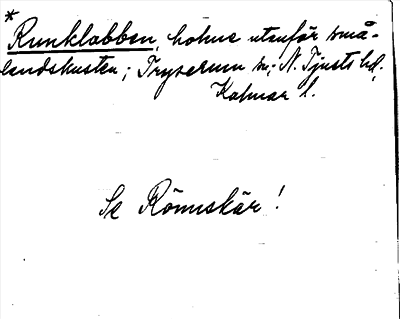 *
Runklabben, holme utanför små-
landskusten; Tryserum sn; N. Tjusts hd.
Kalmar l.
Se Rönnskär!